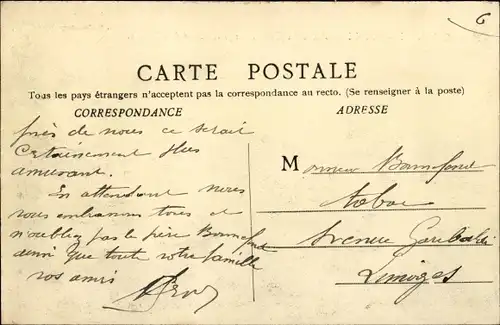 6
CARTE POSTALE
Tous les pays étrangers n'acceptent pas la correspondance au recto. (Se renseigner à la poste)
CORRESPONDANCE
près de nous ce serait
Certainement plus
amusant.
En attendant nous
vous embrassons tous et
n'oubliez pas le père Bonnefond
ainsi que toute votre famille
vos amis
ADRESSE
Monsieur Bonnefond
tabac
Avenue Garibaldi
Limoges